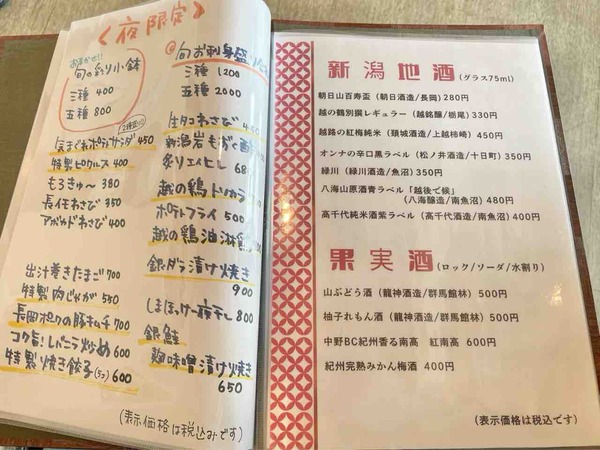 〈夜限定〉
おまかせ!!
旬の彩り小鉢
三種 400
五種 800
気まぐれポテトサラダ 450
特製ピクルス 400
もろきゅ〜 380
長芋わさび 350
アボカドわさび 400
出汁巻きたまご 700
特製肉じゃが 550
長岡ポークの豚キムチ 700
コク旨!レバニラ炒め 600
特製焼き餃子(5コ) 600
旬お刺身盛り
三種 1200
五種 2000
生タコわさび 450
新潟岩もずく酢
炙りエイヒレ 680
越の鶏トリカラ
ポテトフライ 500
越の鶏油淋鶏
銀ダラ漬け焼き
900
しまほっけ一夜干し 800
銀鮭
麹味噌漬け焼き
650
(表示価格は税込みです)
新潟地酒 (グラス75ml)
朝日山百寿盃 (朝日酒造/長岡) 280円
越の鶴別撰レギュラー (越銘醸/栃尾) 330円
越路の紅梅純米 (頚城酒造/上越柿崎) 450円
オンナの辛口黒ラベル (松ノ井酒造/十日町) 350円
緑川 (緑川酒造/魚沼) 350円
八海山原酒青ラベル「越後で候」
(八海醸造/南魚沼) 480円
高千代純米酒紫ラベル (高千代酒造/南魚沼) 400円
果実酒 (ロック/ソーダ/水割り)
山ぶどう酒 (龍神酒造/群馬館林) 500円
柚子れもん酒 (龍神酒造/群馬館林) 500円
中野BC紀州香る南高 紅南高 600円
紀州完熟みかん梅酒 400円
(表示価格は税込です)